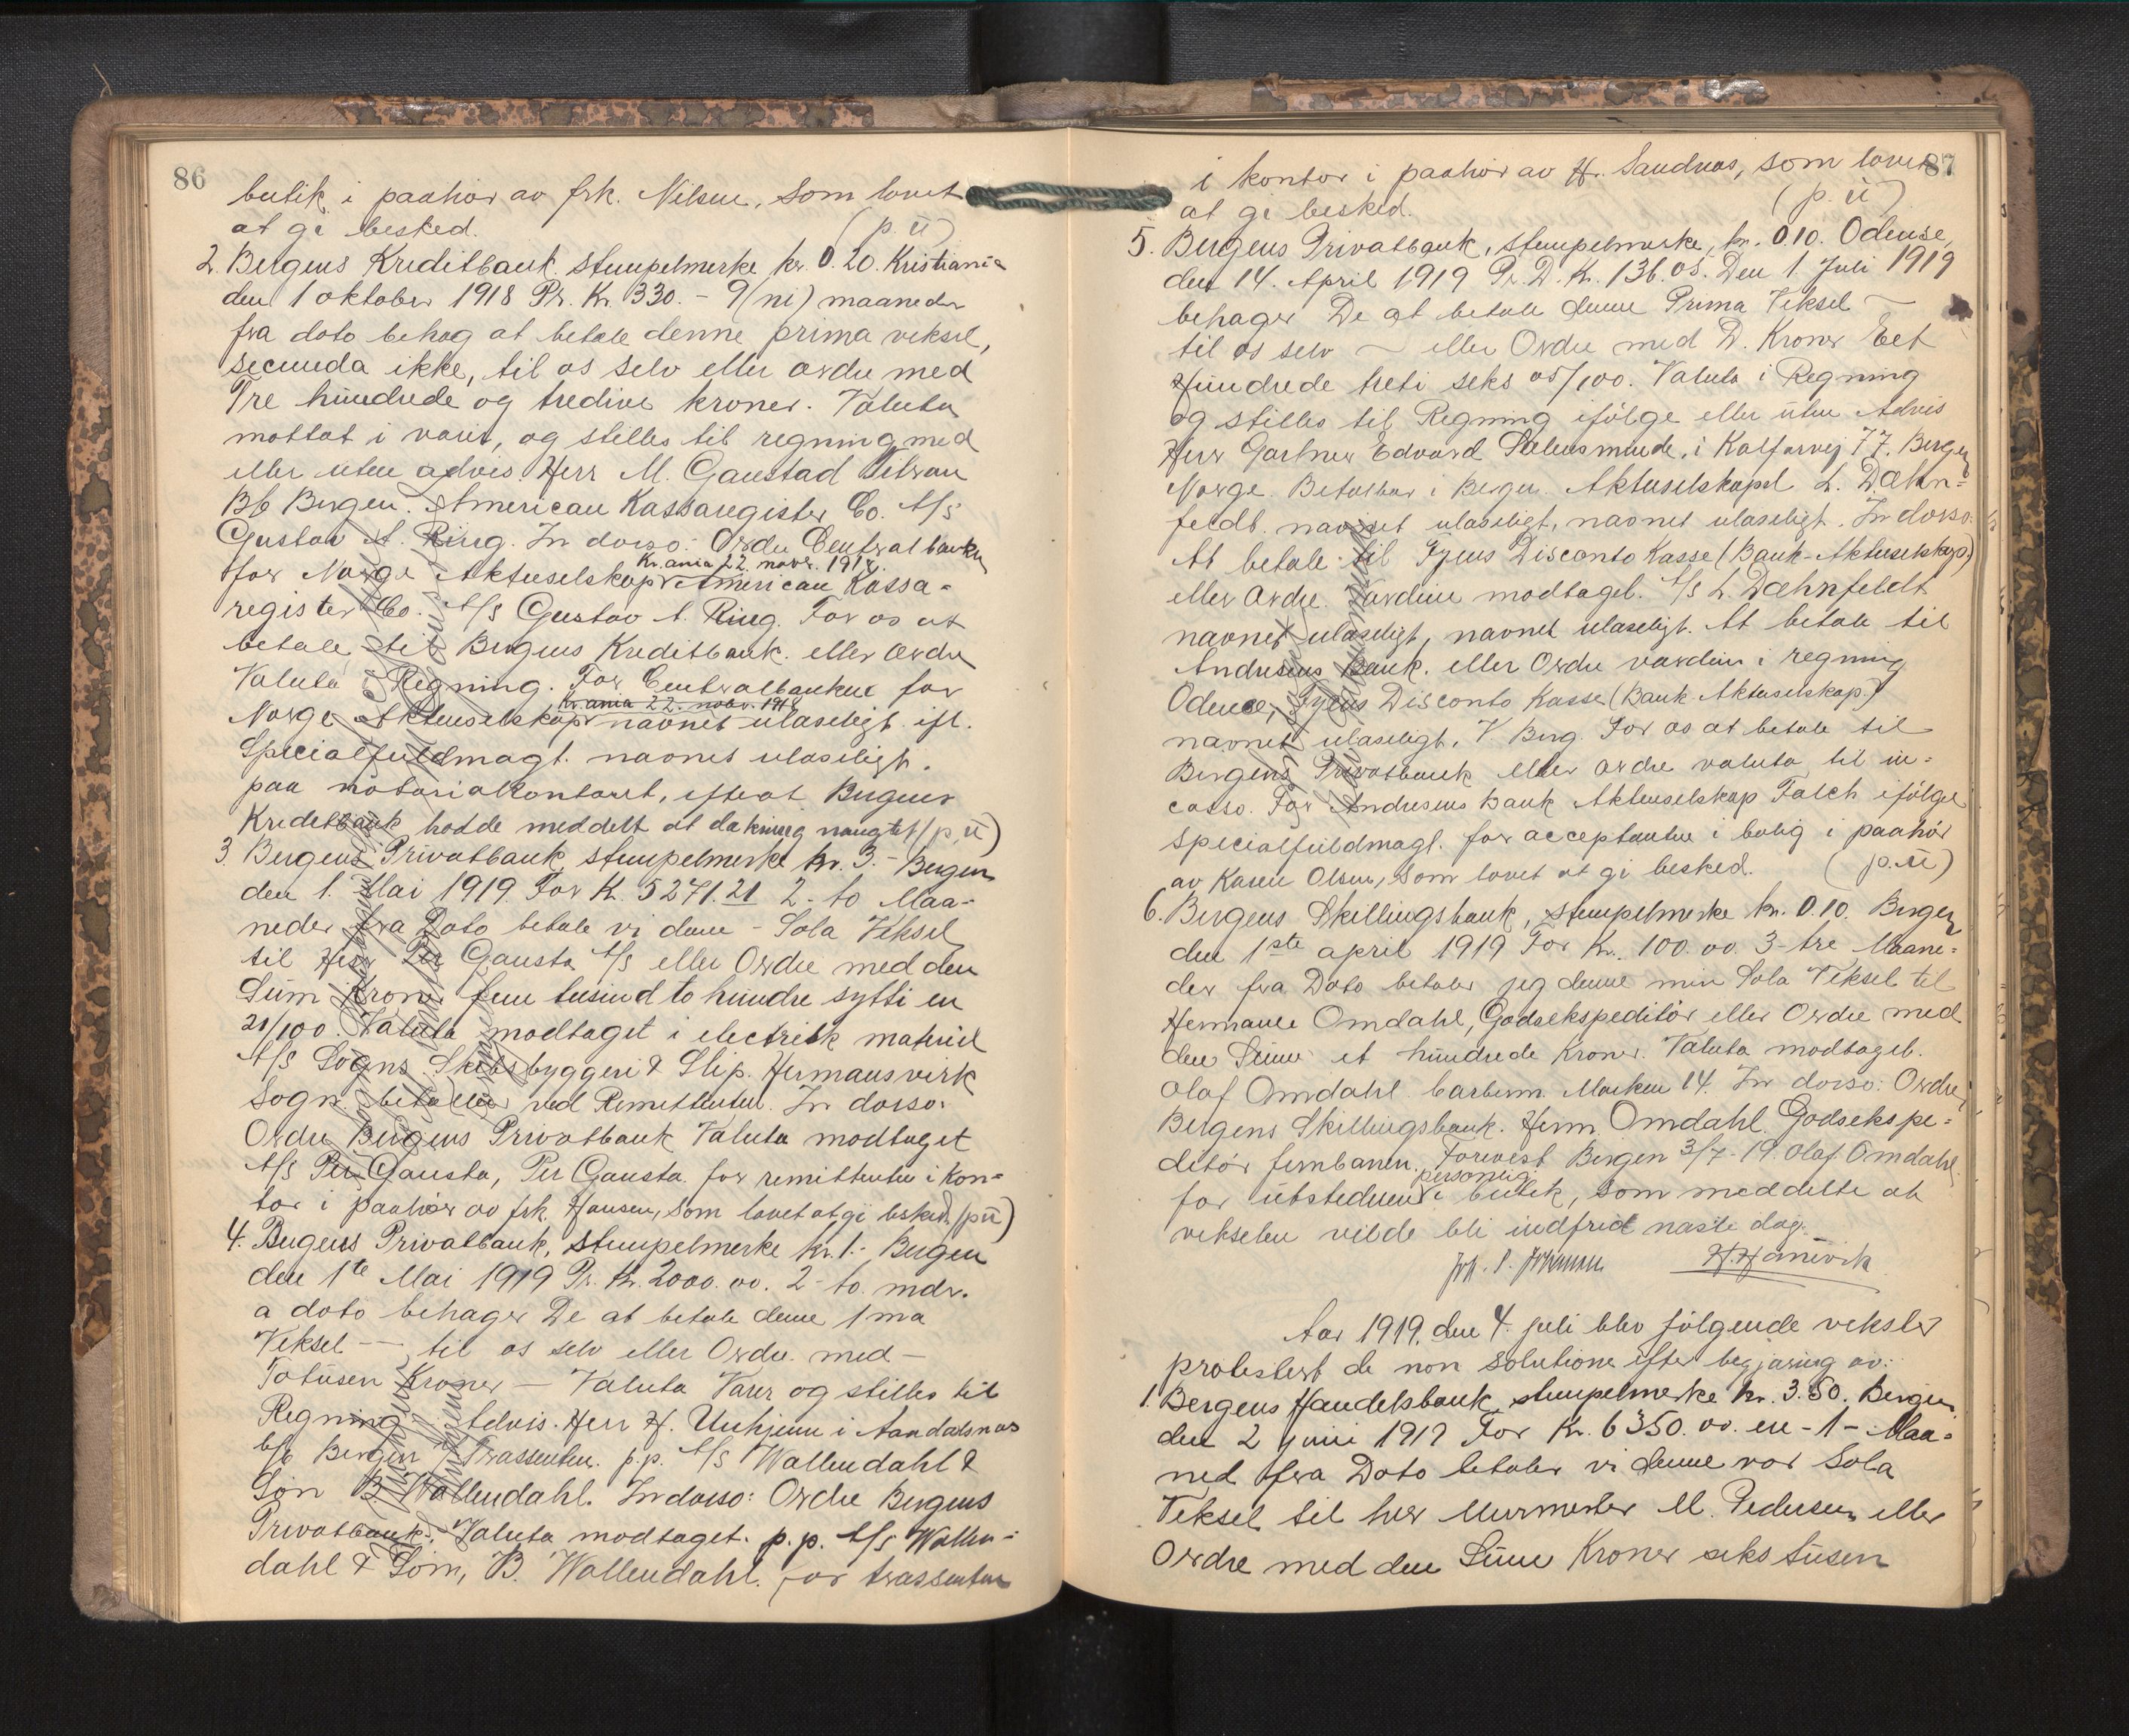 86
butik i paahør av frk. Nilsen, som lovet
at gi besked. (p. ū)
2. Bergens Kreditbank. stempelmerke kr. 0.20. Kristiania
den 1 oktober 1918 Pr. Kr. 330.- 9 (ni) maaneder
fra dato behag at betale denne prima veksel,
secunda ikke, til os selv eller ordre med
Tre hūndrede og tredive kroner. Valuta
mottat i varer, og stilles til regning med
eller uten advis. Herr M. Gaustad
Bb Bergen. American Kassaregister Co. A/S
Gustav A. Ring. In dorso: Ordre Centralbanken
Kr.ania 22. novr. 1918.
for Norge Aktieselskap American Kassa-
register Co. A/S Gustav A. Ring. For os at
betale til Bergens Kreditbank. eller ordre
Valuta i Regning. For Centralbanken for
Kr.ania 22. novbr. 1918
Norge Aktieselskap navnet ulæseligt ifl.
Specialfuldmagt. navnet ulæseligt.
paa notarialkontoret, efterat Bergens
Kreditbank hadde meddelt at dækning nægtet (p. ū)
3. Bergens Privatbank, stempelmerke kr. 3.- Bergen
den 1. Mai 1919 For K. 5271.21 2- to Maa-
neder fra Dato betale vi denne - Sola Veksel
til Herr Per Gausta A/S eller Ordre med den
Sūm Kroner fem tusind to hūndre sytti en
21/100. Valuta modtaget i electrisk materiel
A/S Sogns Skibsbyggeri & Slip. Hermansverk
Sogn. betalbar ved Remittenten. In dorso:
Ordre Bergens Privatbank Valuta modtaget
A/S Per Gausta, Per Gausta. for remittenten i kon-
tor i paahør av frk. Hansen, som lovet at gi besked. (p ū)
4. Bergens Privatbank, stempelmerke kr. 1.- Bergen
den 1te Mai 1919 Pr. Kr. 2000.00. 2- to mdr.
a dato behager De at betale denne 1ma
Veksel — til os selv eller Ordre. med —
Totūsen Kroner — Valuta Varer og stilles til
Regning Advis. Herr H. Unhjem i Aandalsnæs
b/b Bergen Trassenten. p.p. A/S Wallendahl &
Søn B. Wallendahl. In dorso: Ordre Bergens
Privatbank. Valuta modtaget. p.p. A/S Wallen-
dahl & Søn, B. Wallendahl. for trassenten
87
i kontor i paahør av H. Sandnæs, som lovet
at gi besked. (p. ū)
5. Bergens Privatbank, stempelmerke, kr. 0.10. Odense,
den 14. April 1919 Pr. D. K. 136.05. Den 1. Juli 1919
behager De at betale denne Prima Veksel —
til os selv — eller Ordre med D. Kroner Eet
Hūndrede treti seks 05/100. Valuta i Regning
og stilles til Regning ifølge eller ūten Advis
Herr Gartner Edvard i Kalfarvej 77. Bergen
Norge. Betalbar i Bergen. Aktieselskapet L. Dæhn-
feldt. navnet ulæseligt, navnet ulæseligt. In dorso:
At betale til Fyens Disconto Kasse (Bank-Aktieselskap)
eller Ordre. Værdien modtaget. A/S L. Dæhnfeldt
navnet ulæseligt, navnet ulæseligt. At betale til
Andresens Bank. eller Ordre værdien i regning
Odense, Fyens Disconto Kasse (Bank Aktieselskap.)
navnet ulæseligt. V. Berg. For os at betale til
Bergens Privatbank eller ordre valuta til in-
casso. For Andresens Bank Aktieselskap Falch ifølge
specialfūldmagt. for acceptanten i bolig i paahør
av Karen Olsen, som lovet at gi besked. (p. ū)
6. Bergens Skillingsbank, stempelmerke kr. 0.10. Bergen
den 1ste april 1919 For Kr. 100.00 3- tre Maane-
der fra Dato betaler jeg denne min Sola Veksel til
Hermann Omdahl, Godsekspeditør eller Ordre med
den Sūm et hūndrede Kroner. Valuta modtaget.
Olaf Omdahl. Marken 14. In dorso: Ordre
Bergens Skillingsbank. Herm. Omdahl. Godsekspe-
ditør jernbanen. Forevist Bergen 3/7-19. Olaf Omdahl
personlig
for ūtstederen i butik, som meddelte at
vekselen vilde bli indfriet næste dag.
H. Hamvik
Aar 1919, den 4. juli blev følgende veksler
protestert de non solutione efter begjæring av:
1. Bergens Handelsbank, stempelmerke kr. 3.50. Bergen
den 2 juni 1919 For Kr. 6350.00. en -1- Maa-
ned fra Dato betaler vi denne vor Sola
Veksel til herr Murmester M. Pedersen eller
Ordre med den Sūm Kroner seks tūsen